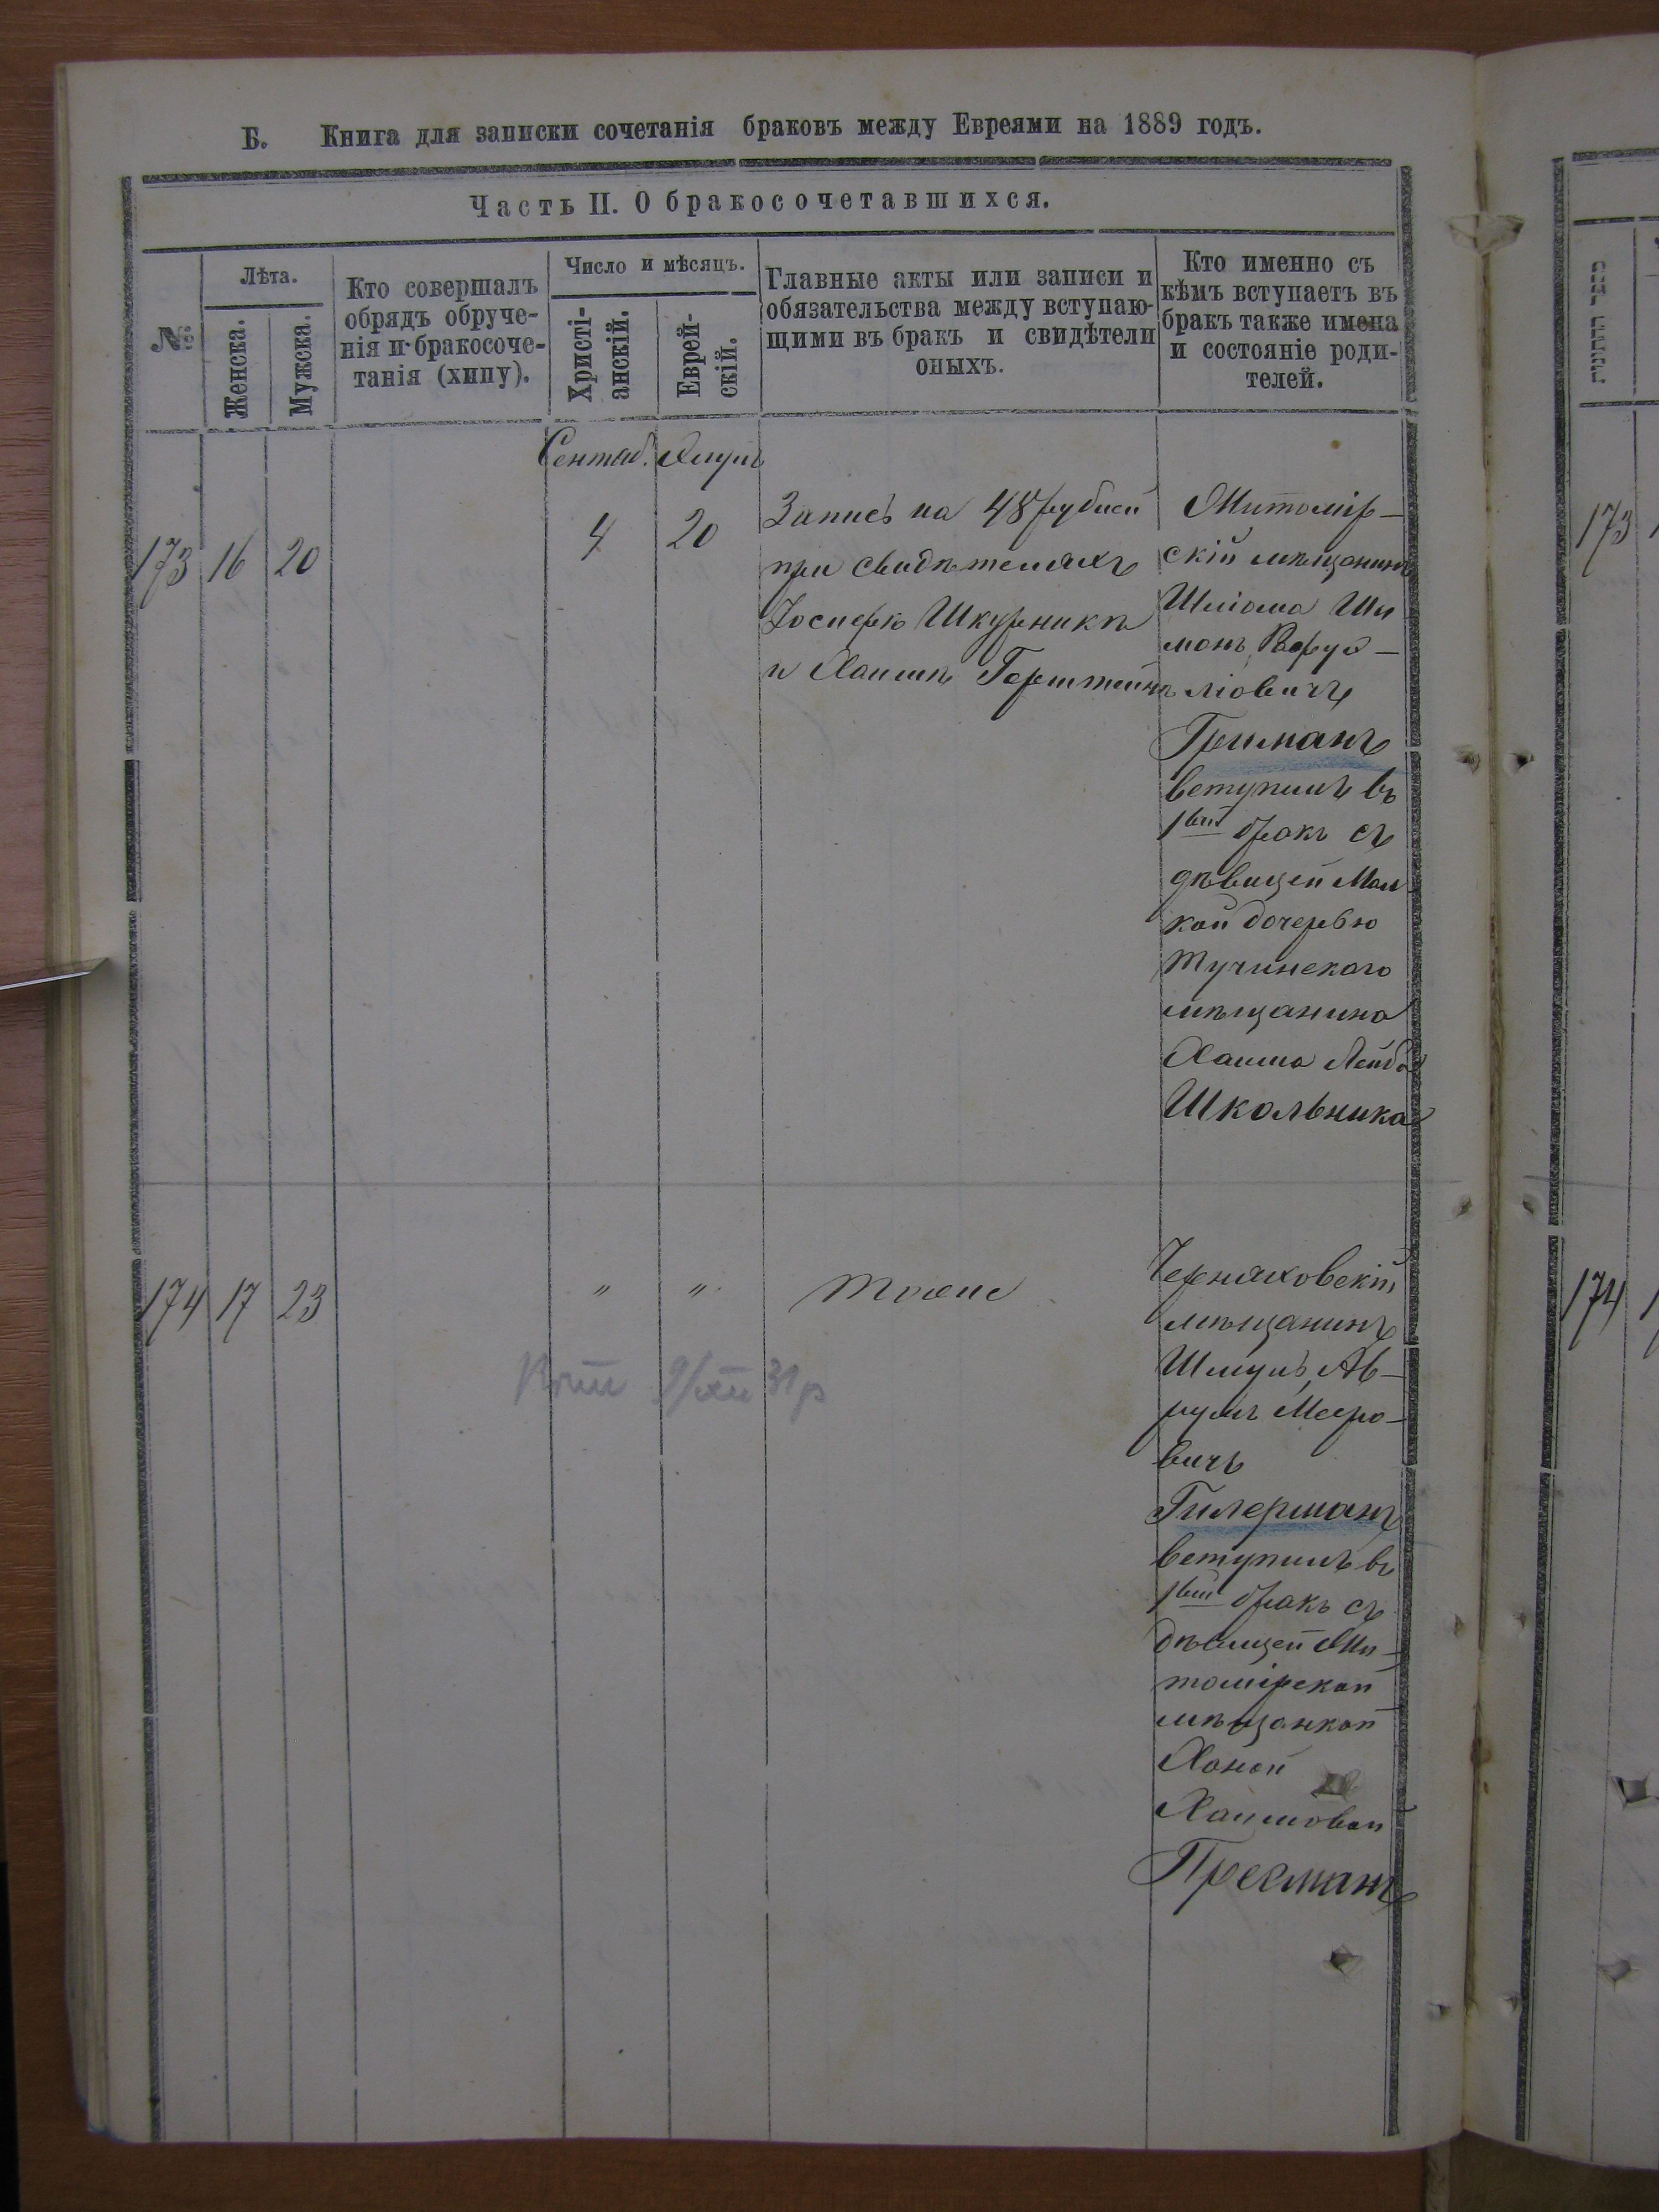 Б. Книга для записки сочетанія браковъ между Евреями на 1889 годъ.
Часть II. О бракосочетавшихся.
№
Лѣта.
Женска.
Мужска.
Кто совершалъ
обрядъ обруче-
нія и бракосоче-
танія (хипу).
Число и мѣсяцъ.
Христі-
анскій.
Еврей-
скій.
Главные акты или записи и
обязательства между вступаю-
щими въ бракъ и свидѣтели
оныхъ.
Кто именно съ
кѣмъ вступаетъ въ
бракъ также имена
и состояніе роди-
телей.
Сентяб. Элулъ
173 16 20 4 20
Запись на 48 рублей
при свидѣтеляхъ
Іосифѣ Шкурникѣ
и Хаимѣ Герштейнѣ
Житомір-
скій мѣщанинъ
Шліома Ши
монъ
ліовичъ
Гриманъ
вступилъ въ
1вый бракъ съ
дѣвицей Мал
кой дочерью
Тучинскаго
мѣщанина
Хаима Лейба
Школьника
174 17 23 " "
Тоже
Черняховскій
мѣщанинъ
Шмуль Ав-
румъ Мееро-
вичъ
Гилерманъ
вступилъ въ
1вый бракъ съ
дѣвицей Жи-
томірской
мѣщанкой
Ханой
Хаимовой
Пресманъ
9/XII 31 р
173
174